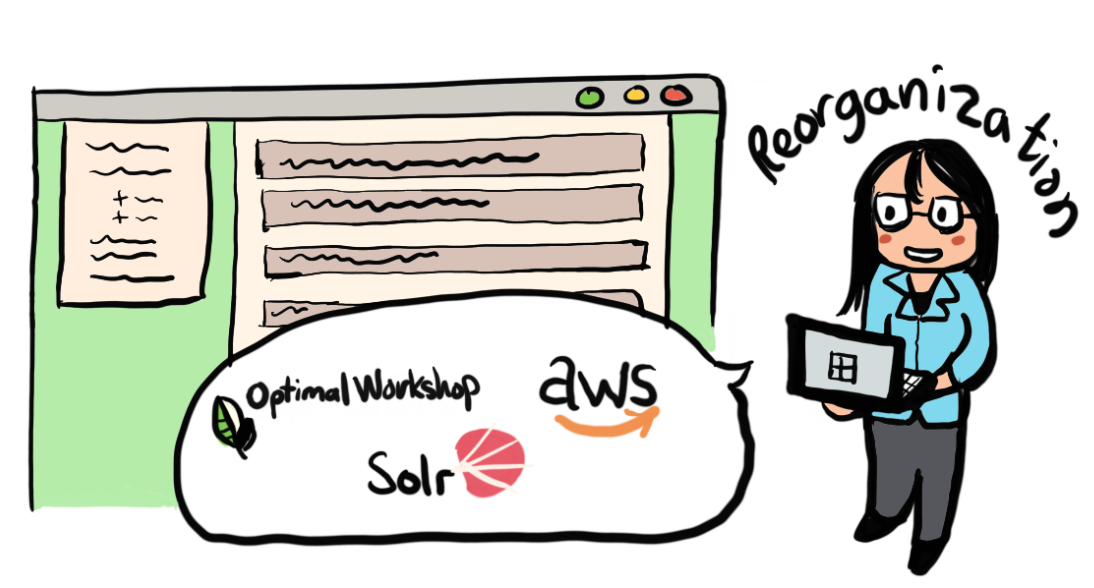 Reorganization
Optimal Workshop
aws
Solr